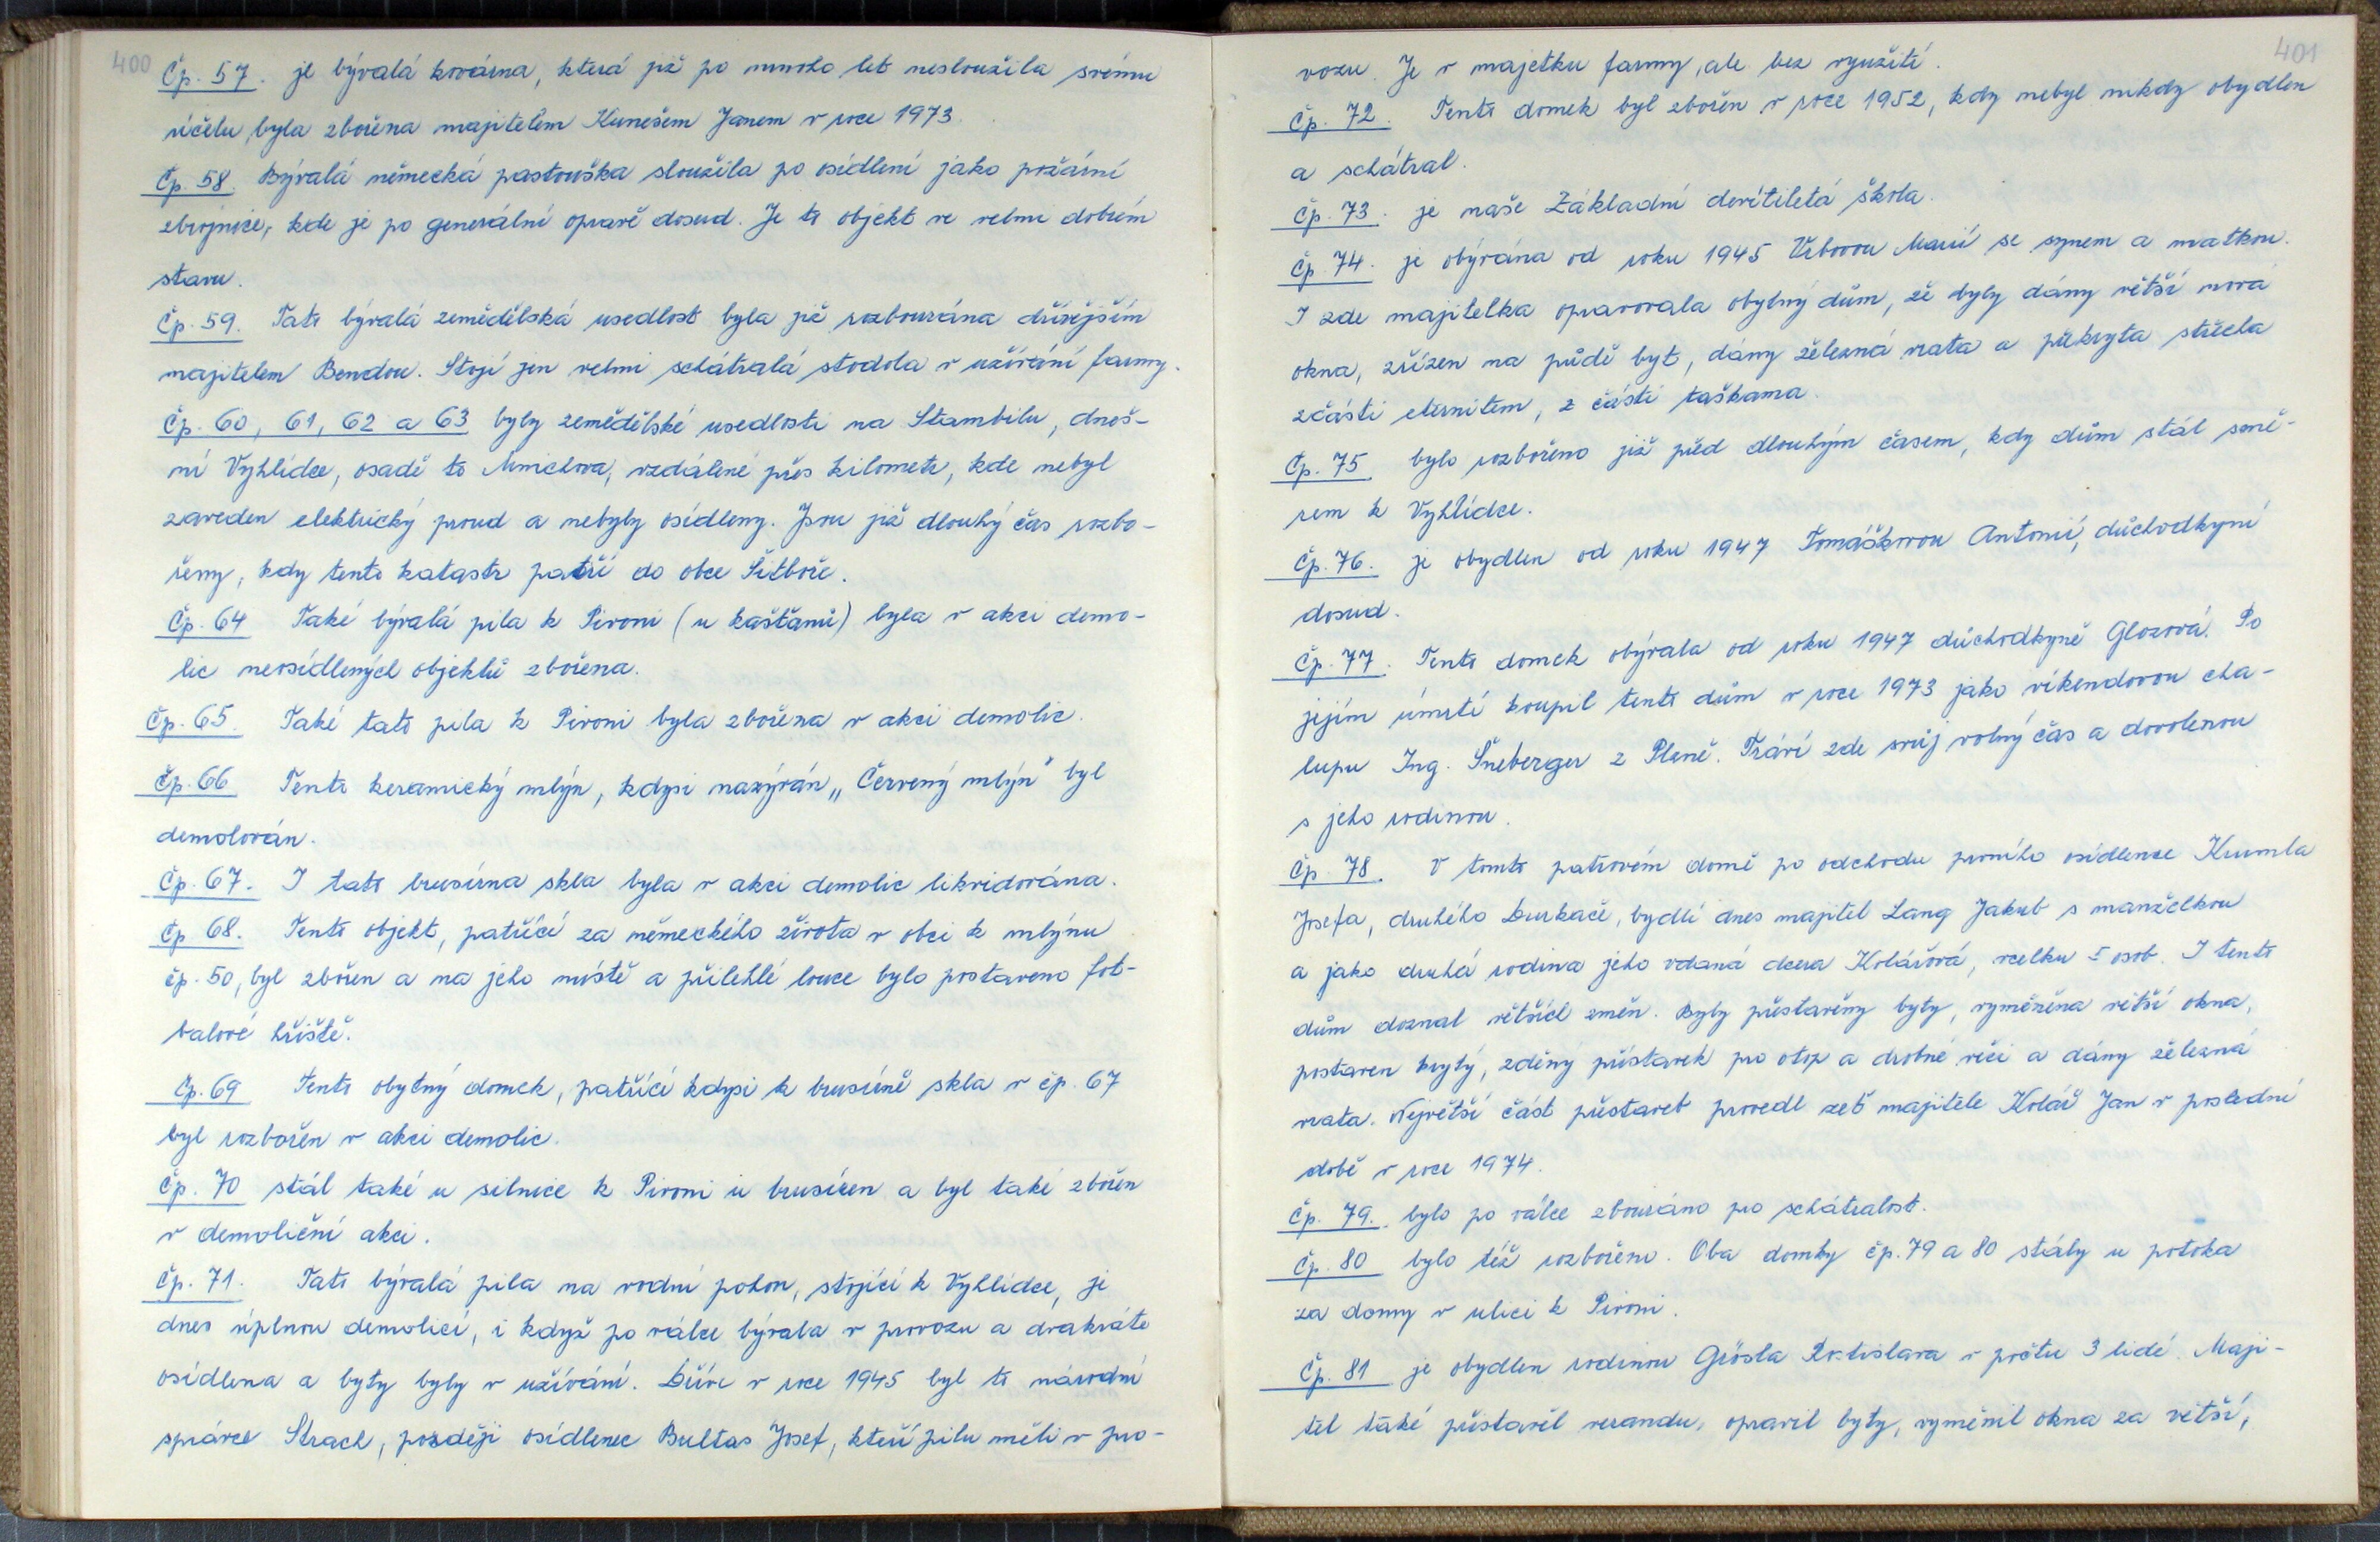 400
Čp. 57. je bývalá kovárna, která již po mnoho let nesloužila svému
účelu, byla zbořena majitelem Kunešem Janem v roce 1973.
Čp. 58. Bývalá německá pastouška sloužila po osídlení jako požární
zbrojnice, kde je po generální opravě dosud. Je to objekt ve velmi dobrém
stavu.
Čp. 59. Tato bývalá zemědělská usedlost byla již rozbourána dřívějším
majitelem Bendou. Stojí jen velmi schátralá stodola v užívání farmy.
Čp. 60, 61, 62 a 63 byly zemědělské usedlosti na Stambilu, dneš-
ní Vyhlídce, osadě to Mnichova, vzdálené přes kilometr, kde nebyl
zaveden elektrický proud a nebyly osídleny. Jsou již dlouhý čas rozbo-
řeny, kdy tento katastr patří do obce Sítboře.
Čp. 64 Také bývalá pila k Pironi (u kaštanů) byla v akci demo-
lic neosídlených objektů zbořena.
Čp. 65. Také tato pila k Pironi byla zbořena v akci demolic.
Čp. 66 Tento keramický mlýn, kdysi nazýván „Červený mlýn" byl
demolován.
Čp. 67. I tato brusírna skla byla v akci demolic likvidována.
Čp 68. Tento objekt, patřící za německého života v obci k mlýnu
čp. 50, byl zbořen a na jeho místě a přilehlé louce bylo postaveno fot-
balové hřiště.
Čp. 69 Tento obytný domek, patřící kdysi k brusírně skla v čp. 67
byl rozbořen v akci demolic.
Čp. 70 stál také u silnice k Pironi u brusíren a byl také zbořen
v demoliční akci.
Čp. 71. Tato bývalá pila na vodní pohon, stojící k Vyhlídce, je
dnes úplnou demolicí, i když po válce bývala v provozu a dvakráte
osídlena a byty byly v užívání. Dříve v roce 1945 byl to národní
správce Strach, později osídlenec Bultas Josef, kteří pilu měli v pro-
401
vozu. Je v majetku farmy, ale bez využití.
Čp. 72. Tento domek byl zbořen v roce 1952, kdy nebyl nikdy obydlen
a schátral.
Čp. 73. je naše Základní devítiletá škola.
Čp. 74. je obývána od roku 1945 Vrbovou Marií se synem a matkou.
I zde majitelka opravovala obytný dům, že byly dány větší nová
okna, zřízen na půdě byt, dány železná vrata a překryta střecha
zčásti eternitem, z části taškama.
Čp. 75 bylo rozbořeno již před dlouhým časem, kdy dům stál smě-
rem k Vyhlídce.
Čp. 76. je obydlen od roku 1947 Tomáškovou Antonií, důchodkyní
dosud.
Čp. 77. Tento domek obývala od roku 1947 důchodkyně Glozová. Po
jejím úmrtí koupil tento dům v roce 1973 jako víkendovou cha-
lupu Ing. Šneberger z Plzně. Tráví zde svůj volný čas a dovolenou
s jeho rodinou.
Čp. 78. V tomto patrovém domě po odchodu prvního osídlence Krumla
Josefa, druhého Durkače, bydlí dnes majitel Lang Jakub s manželkou
a jako druhá rodina jeho vdaná dcera Kolářová, vcelku 5 osob. I tento
dům doznal větších změn. Byly přestavěny byty, vyměněna větší okna,
postaven krytý, zděný přístavek pro otop a drobné věci a dány železná
vrata. Největší část přestaveb provedl zeť majitele Kolář Jan v poslední
době v roce 1974.
Čp. 79. bylo po válce zbouráno pro schátralost.
Čp. 80 bylo též rozbořeno. Oba domky čp. 79 a 80 stály u potoka
za domy v ulici k Pironi.
Čp. 81 je obydlen rodinou Grösla Rostislava v počtu 3 lidé. Maji-
tel také přistavěl verandu, opravil byty, vyměnil okna za větší,